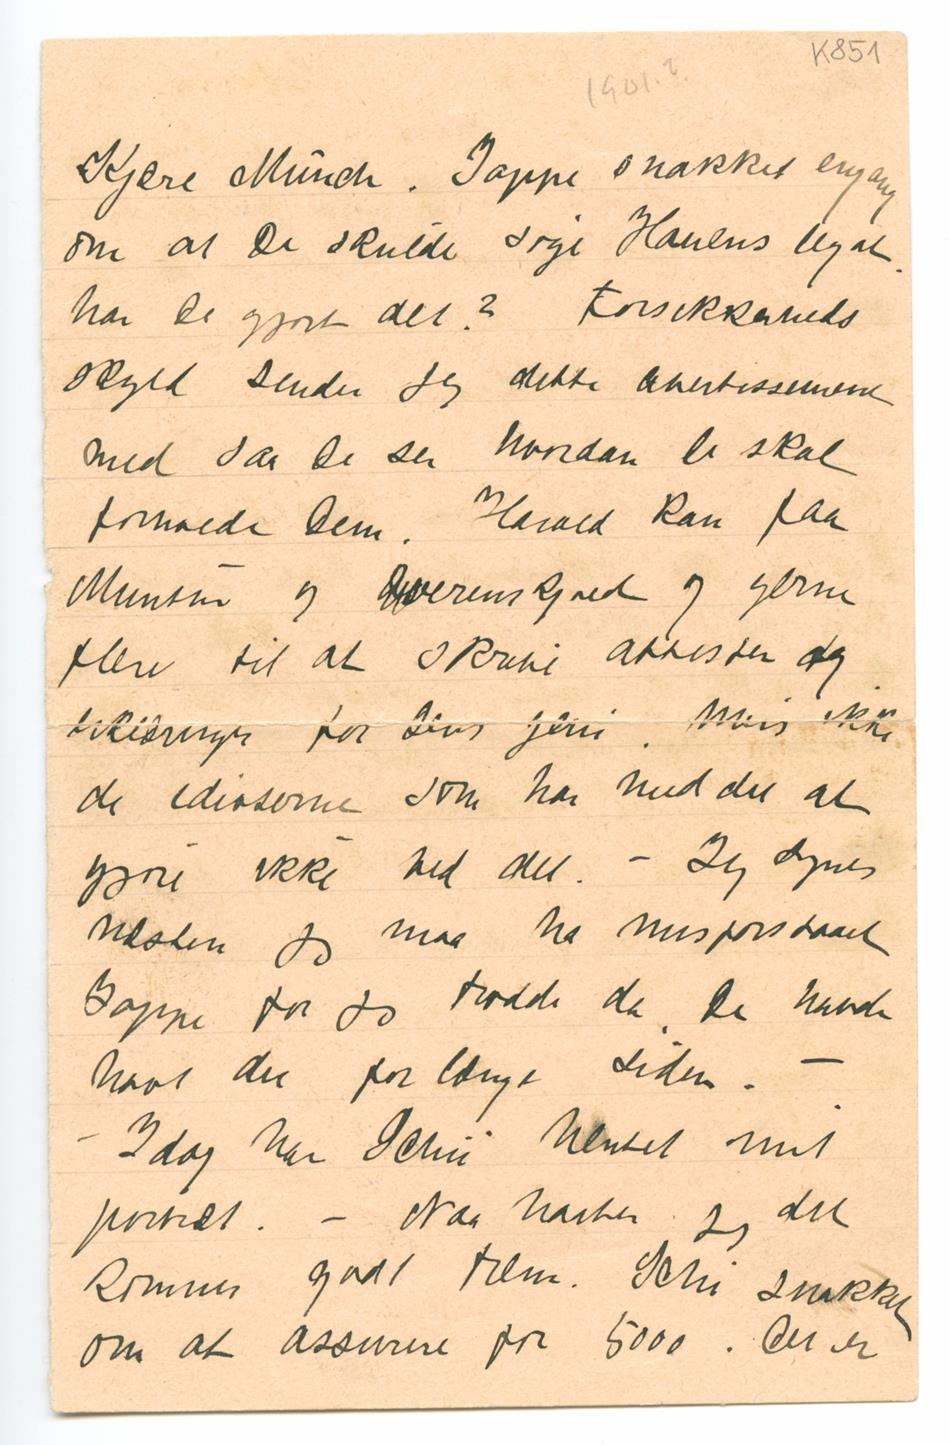 K851
1901.?
Kjære Munch. Jappe snakket engang
om at De skulde søge Houens legat.
har De gjort det? Forsikkerheds
skyld sender jeg dette avertissement
med saa De ser hvordan De skal
forholde Dem. Harald kan faa
Munthe og Werenskjold og gjerne
flere til at skrive attester og
erklæringer for Deres geni. Hvis ikke
de idioterne som har med det at
gjøre ikke ved det. – Jeg synes
næsten jeg maa ha misforstaaet
Jappe for jeg trodde da De havde
havt det for længe siden. –
– Idag har Schii hentet mit
portræt. – Naa haaber jeg det
kommer godt frem. Schii snakket
om at assurere for 5000. Det er